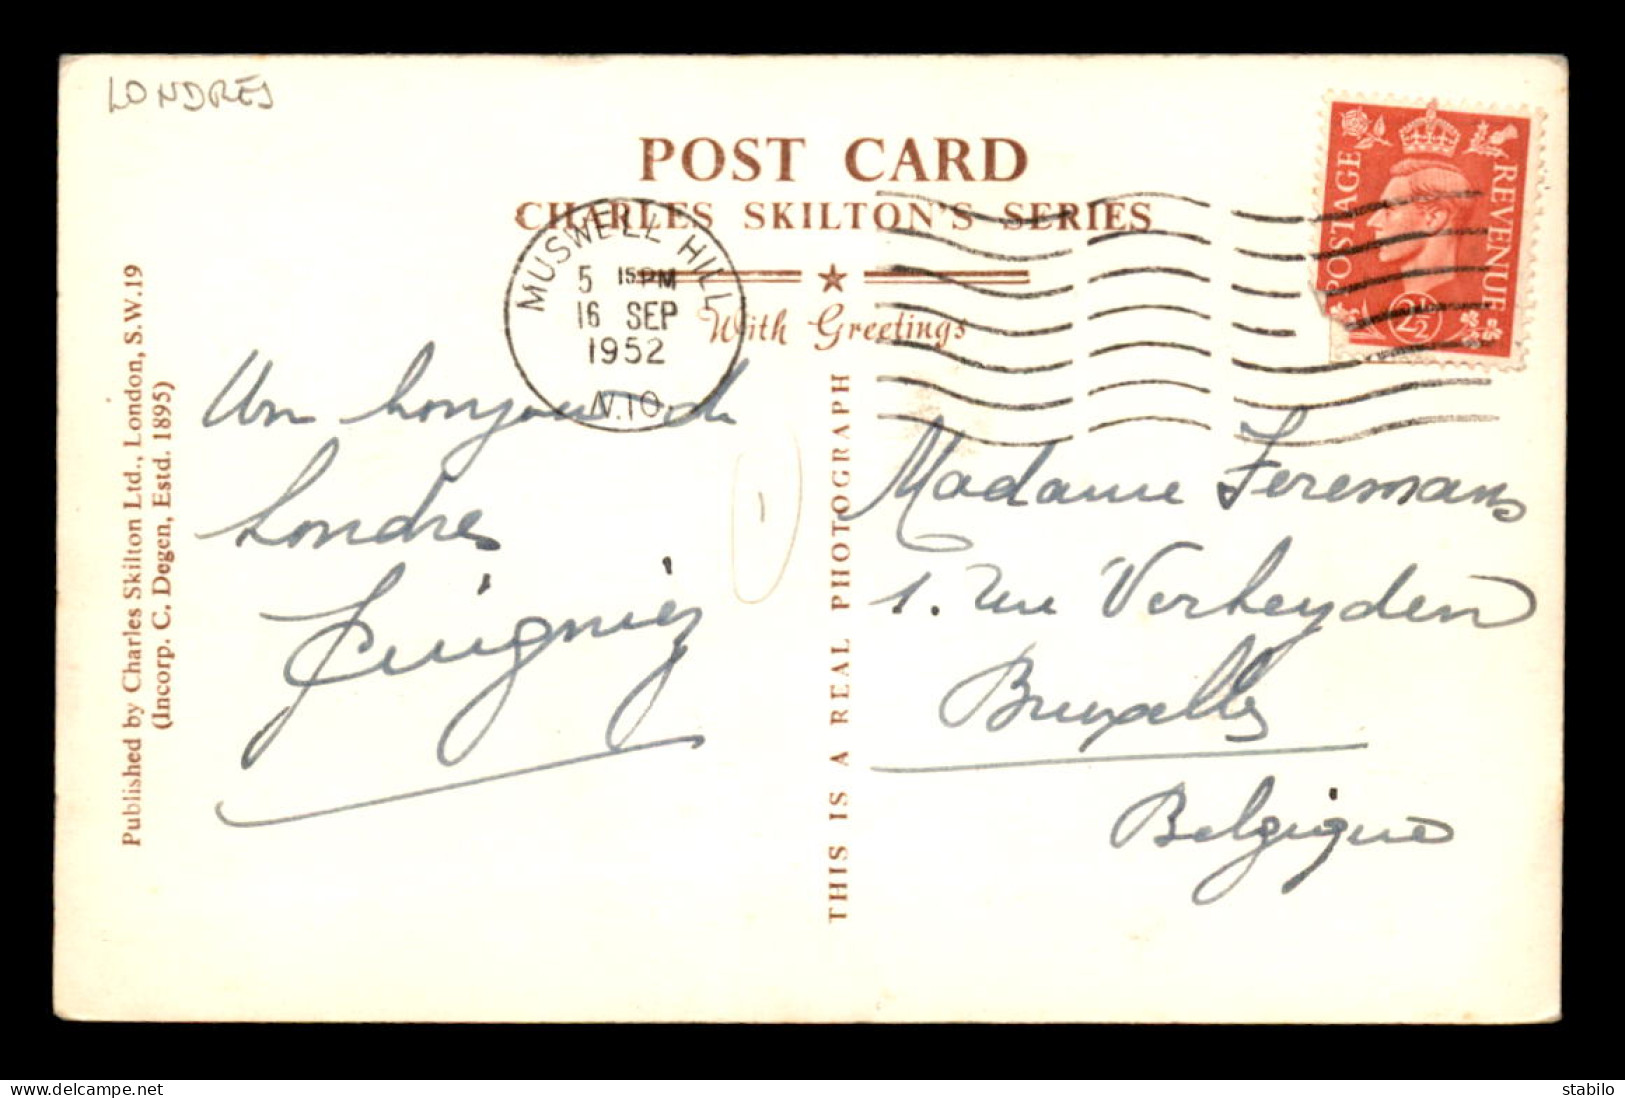 LONDRES
POST CARD
CHARLES SKILTON'S SERIES
With Greetings
MUSWELL HILL
5 15 PM
16 SEP
1952
N.10.
POSTAGE
REVENUE
2½
Un bonjour de
Londres
1
Madame Feremans
1. rue Verheyden
Bruxelles
Belgique
THIS IS A REAL PHOTOGRAPH
Published by Charles Skilton Ltd., London, S.W.19
(Incorp. C. Degen, Estd. 1895)
stabilo